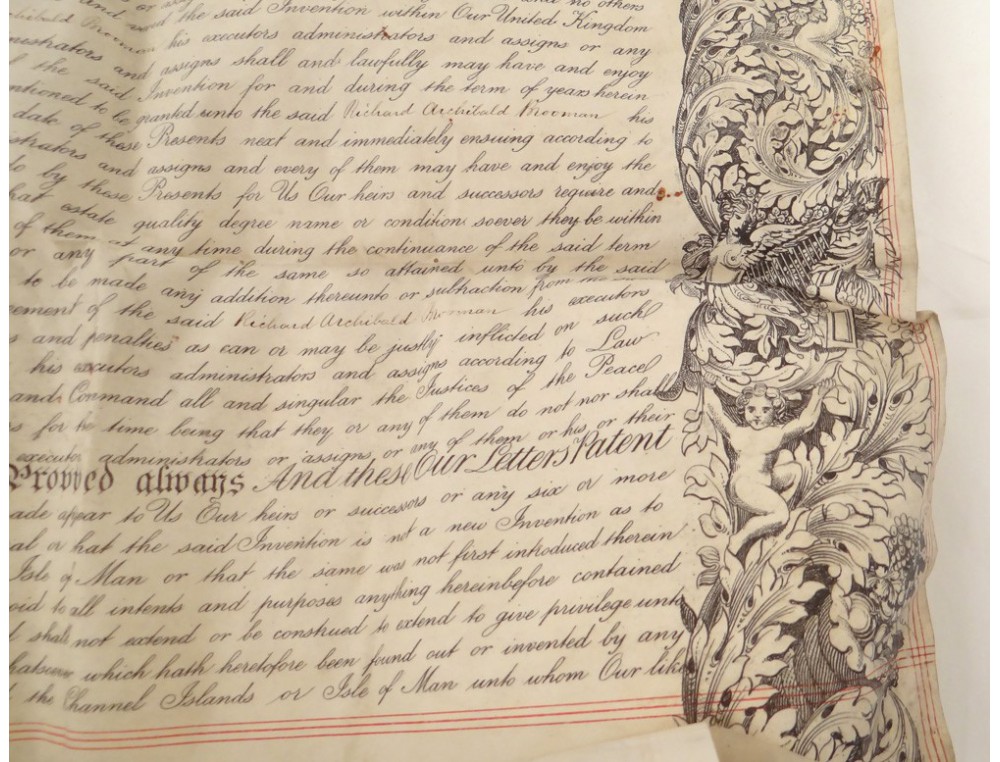 shall no others
and the said Invention within Our United Kingdom
Archibald Brooman his executors administrators and assigns or any
ministrators and assigns shall and lawfully may have and enjoy
the said Invention for and during the term of years herein
entioned to be granted unto the said Richard Archibald Brooman his
date of these Presents next and immediately ensuing according to
istrators and assigns and every of them may have and enjoy the
by these Presents for Us Our heirs and successors require and
hat estate quality degree name or condition soever they be within
of them at any time during the continuance of the said term
or any part of the same so attained unto by the said
to be made any addition thereunto or subtraction from the
cement of the said Richard Archibald Brooman his executors
s and penalties as can or may be justly inflicted on such
his executors administrators and assigns according to Law
and Command all and singular the Justices of the Peace
s for the time being that they or any of them do not nor shall
executors administrators or assigns or any of them or his or their
Provided always And these Our Letters Patent
ade appear to Us Our heirs or successors or any six or more
al or hat the said Invention is not a new Invention as to
Isle of Man or that the same was not first introduced therein
oid to all intents and purposes anything hereinbefore contained
shall not extend or be construed to extend to give privilege unto
hatsoever which hath heretofore been found out or invented by any
the Channel Islands or Isle of Man unto whom Our like